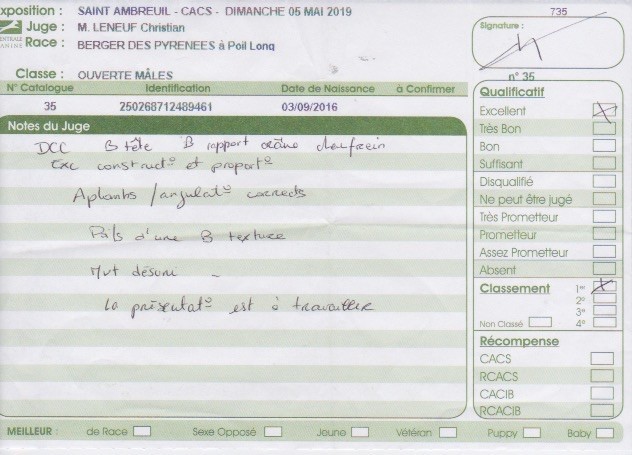 Exposition : SAINT AMBREUIL - CACS - DIMANCHE 05 MAI 2019
Juge : M. LENEUF Christian
Race : BERGER DES PYRENEES à Poil Long
CENTRALE
CANINE
735
Signature :
Classe : OUVERTE MÂLES
n° 35
N° Catalogue Identification Date de Naissance à Confirmer
35 250268712489461 03/09/2016
Notes du Juge
DCC B tête B rapport crâne chanfrein
Exc construct° et proport°
Aplombs / angulat° corrects
Poils d'une B texture
Mvt désuni
La présentat° est à travailler
Qualificatif
Excellent
Très Bon
Bon
Suffisant
Disqualifié
Ne peut être jugé
Très Prometteur
Prometteur
Assez Prometteur
Absent
Classement 1er
2e
3e
Non Classé 4e
Récompense
CACS
RCACS
CACIB
RCACIB
MEILLEUR : de Race Sexe Opposé Jeune Vétéran Puppy Baby